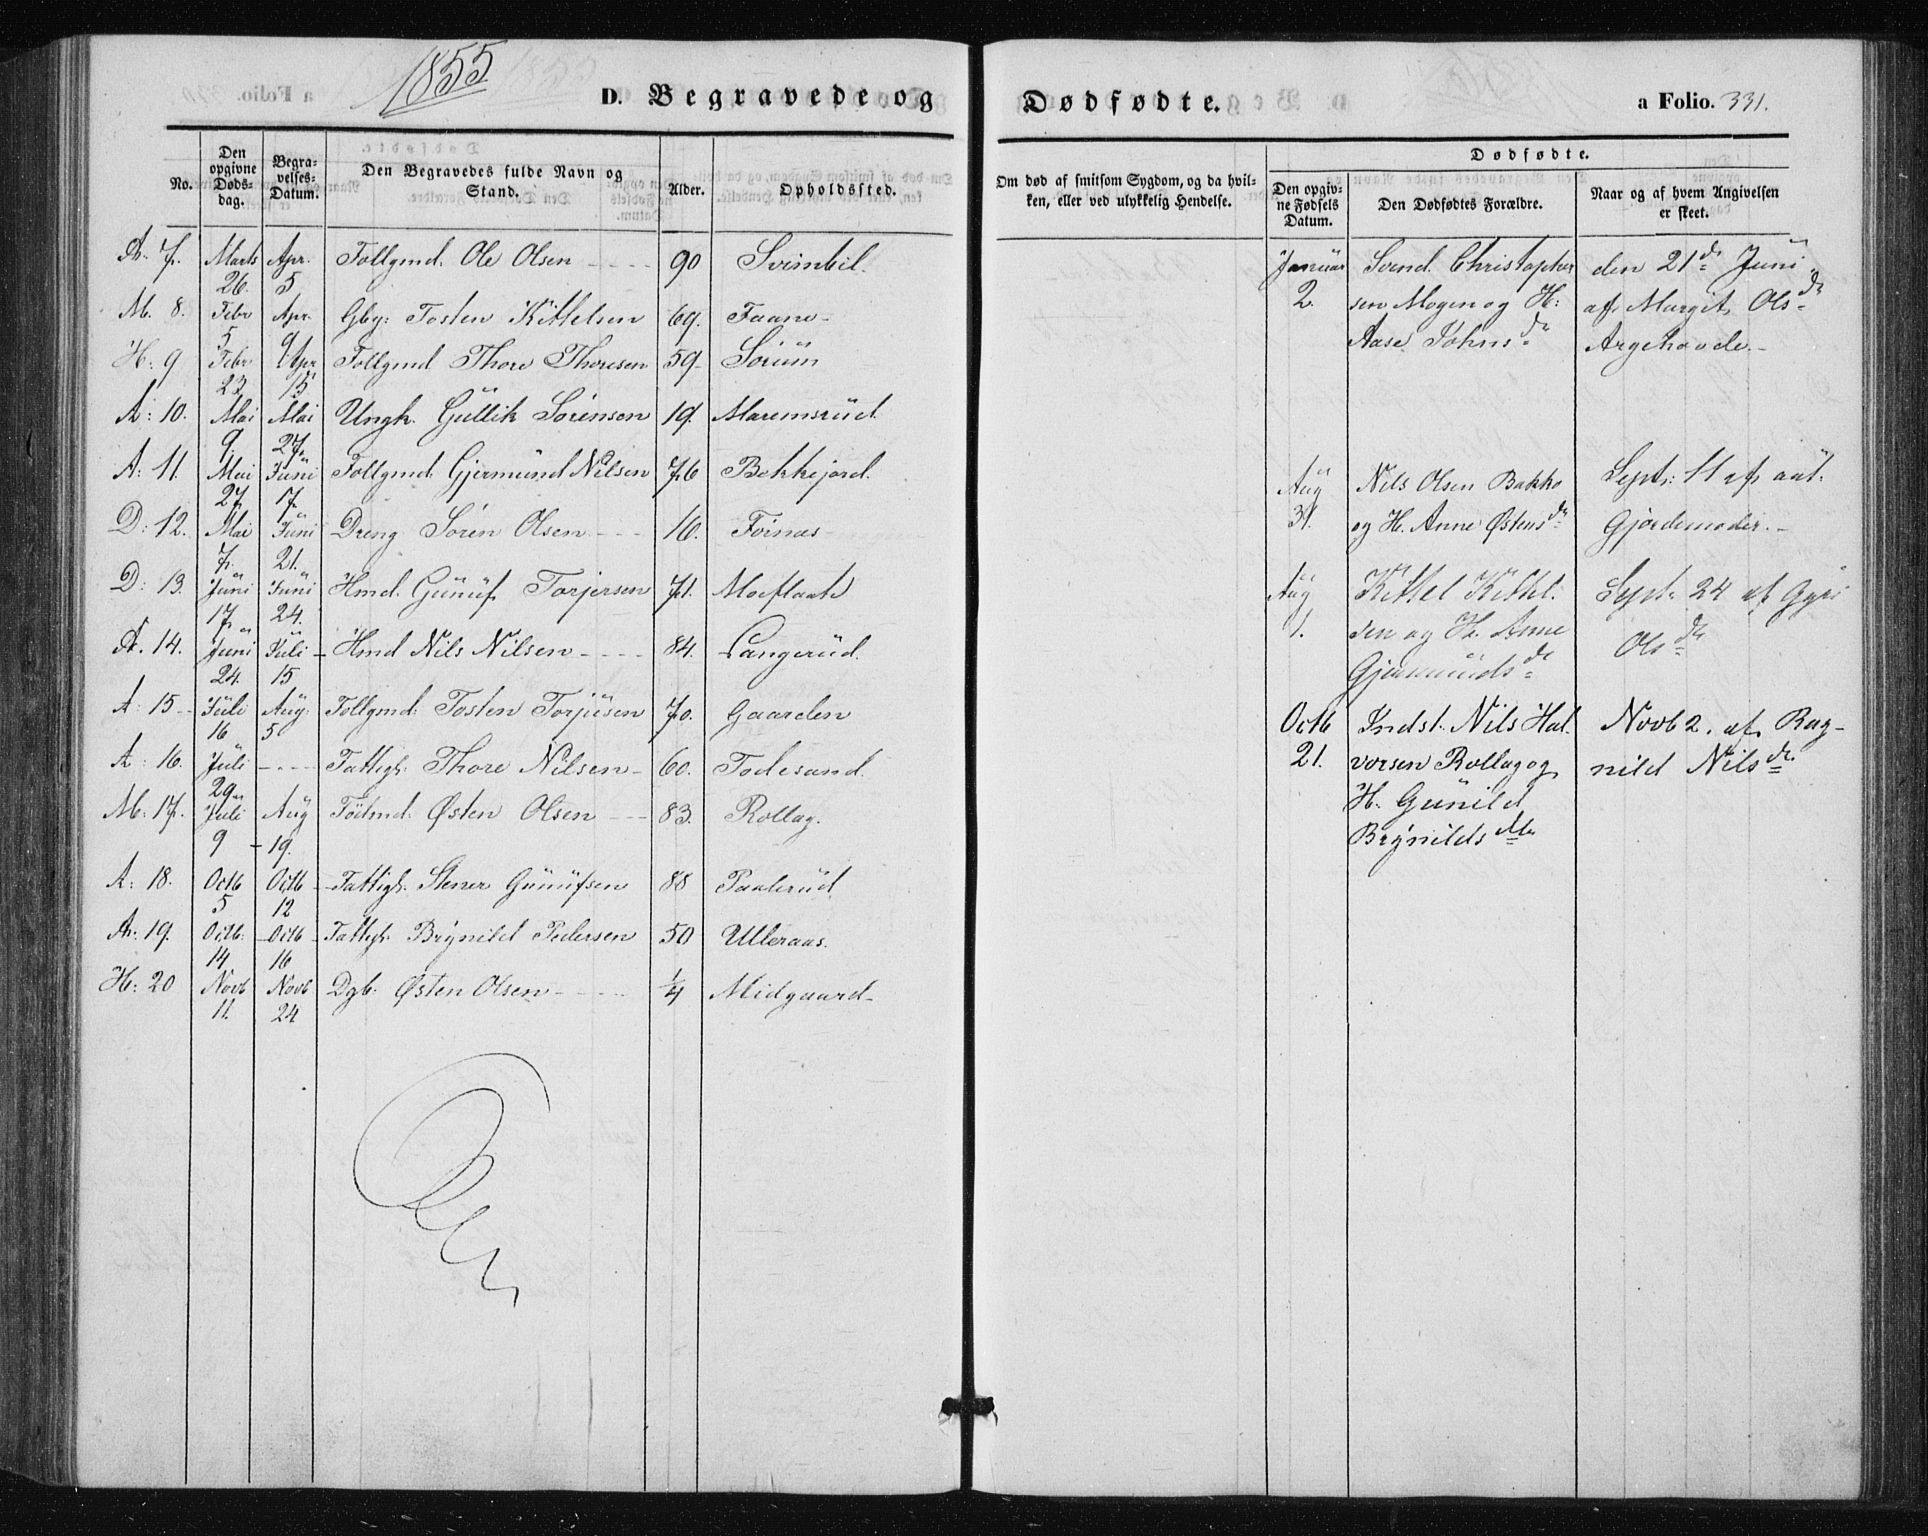 1855
D. Begravede og Dødfødte.
a Folio. 331.
No.
Den opgivne Døds-dag.
Begra-velses-Datum.
Den Begravedes fulde Navn og Stand.
Alder.
Opholdssted.
Om død af smitsom Sygdom, og da hvil-ken, eller ved ulykkelig Hendelse.
Dødfødte.
Den opgiv-ne Fødsels Datum.
Den Dødfødtes Forældre.
Naar og af hvem Angivelsen er skeet.
A. 7. Marts 26. Apr. 5 Follgmd. Ole Olsen 90 Svimbil.
M. 8. Febr 5 Apr. 9 Gby: Tosten Kittelsen 69. Faane
H: 9 Febr 23 Apr 15 Follgmd Thore Thoresen 59. Sörum
A: 10. Mai 9. Mai 27. Ungk. Gullik Sörensen 19. Maremsrud.
A: 11. Mai 27. Juni 17. Follgmd. Gjermund Nilsen 76 Bekkejord.
D: 12. Mai 7. Juni 21. Dreng Sören Olsen 16. Fornæs
D: 13. Juni 17. Juni 24. Hmd. Gunuf Torjersen 71. Moeflaate
A. 14. Juni 24. Juli 15 Hmd Nils Nilsen 84. Langerud.
A: 15 Juli 16 Aug. 5 Follgmd: Tosten Torjusen 70. Gaarden
A: 16. Juli 29 Fattigl. Thore Nilsen 60. Todesand.
M: 17. Juli 9 Aug 19. Födmd. Østen Olsen 83. Rollag.
A: 18. Octb 5 Octb 12 Fattigl. Stener Gunufsen 88 Paalerud
A: 19. Octb. 14 Octb 16 Fattigl. Brynild Pedersen 50 Ulleraas.
H: 20 Novb 11. Novb 24 Dgb. Østen Olsen 1/4 Midgaard
Januar 2. Svend Christopher
sen Mogen og H:
Aase Johnsdr
den 21de Juni
af Margit Olsdr
Argehovde.
Aug 31. Nils Olsen Bakke
og H. Anne Østensdr
Sept. 11 af aut.
Gjordemoder.
Aug 1. Kittel Kittel
sen og H. Anne
Gjermundsdr
Sept. 24 af Gyri
Olsdr
Octb 21. Indst. Nils Hal
vorsen Rollag og
H. Gunild
Brynildsdtr
Novb 2. af Rag-
nild Nilsdr.